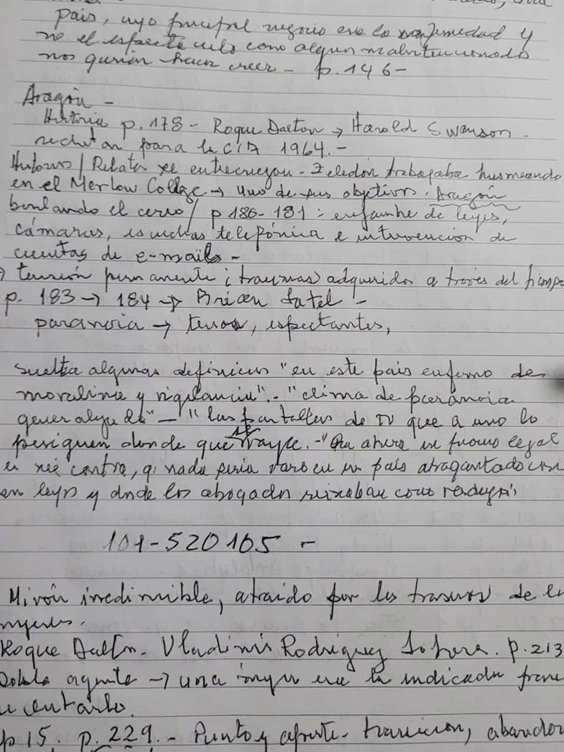 país, cuyo principal negocio era la enfermedad y
no el espectáculo como algun malintencionado
nos querían hacer creer - p. 146 -
Aragón -
Historia p. 178 - Roque Dalton → Harold Swanson.
reclutan para la CIA 1964. -
Historias / Relatos se entrecruzan. Zeledón trabajaba husmeando
en el Merlow College → uno de sus objetivos. Aragón
burlando el cerco / p 186 - 191: enjambre de leyes,
cámaras, escuchas telefónica e intervención de
cuentas de e-mails -
→ tensión permanente; traumas adquiridos a través del tiempo
p. 183 → 184 → -
paranoia → tensos, espectantes,
suelta algunas "en este país enfermo de
moralina y vigilancia". - "clima de paranoia
" - "las pantallas de TV que a uno lo
persiguen donde quiera vaya. - ahora un proceso legal
en mi contra, q nada sería raro en un país atragantado con
en leyes y donde los abogados como verdugos
101-520105 -
Mirón irredimible, atraído por los traseros de las
mujeres.
Roque Dalton. Vladimir Rodríguez p. 213
Doble agente → una mujer era la indicada para
.
p 15. p. 229. - Punto y aparte - transición, abandon